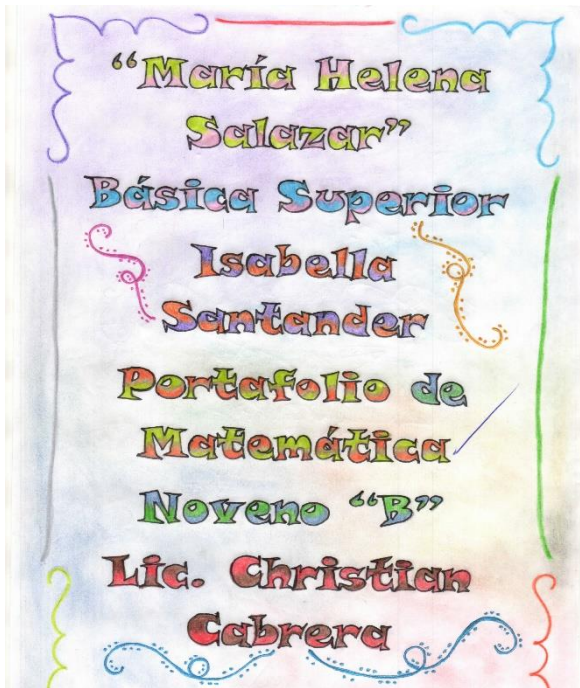 “María Helena
Salazar”
Básica Superior
Isabella
Santander
Portafolio de
Matemática
Noveno “B”
Lic. Christian
Cabrera